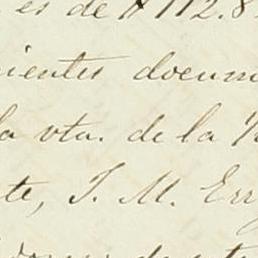 es de $112.8
ientes docum
la vta. de la
te, J. M. Err